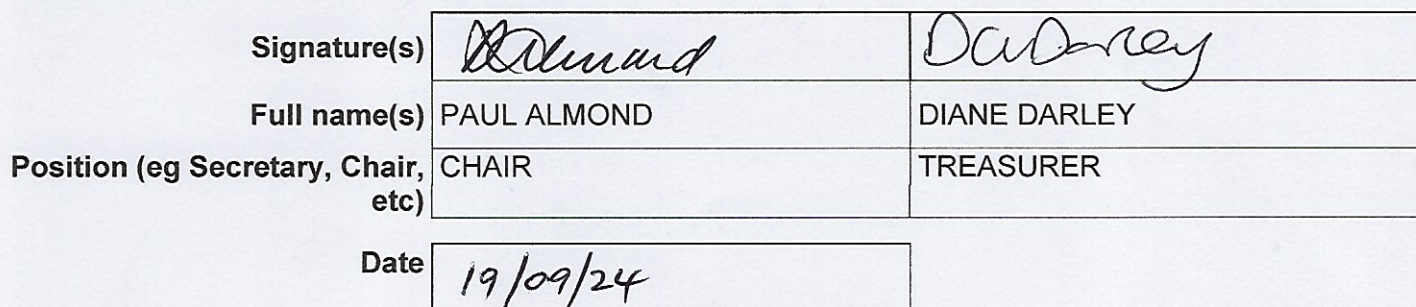 Signature(s) PAlmond DADarley
Full name(s) PAUL ALMOND DIANE DARLEY
Position (eg Secretary, Chair, CHAIR TREASURER
etc)
Date 19/09/24